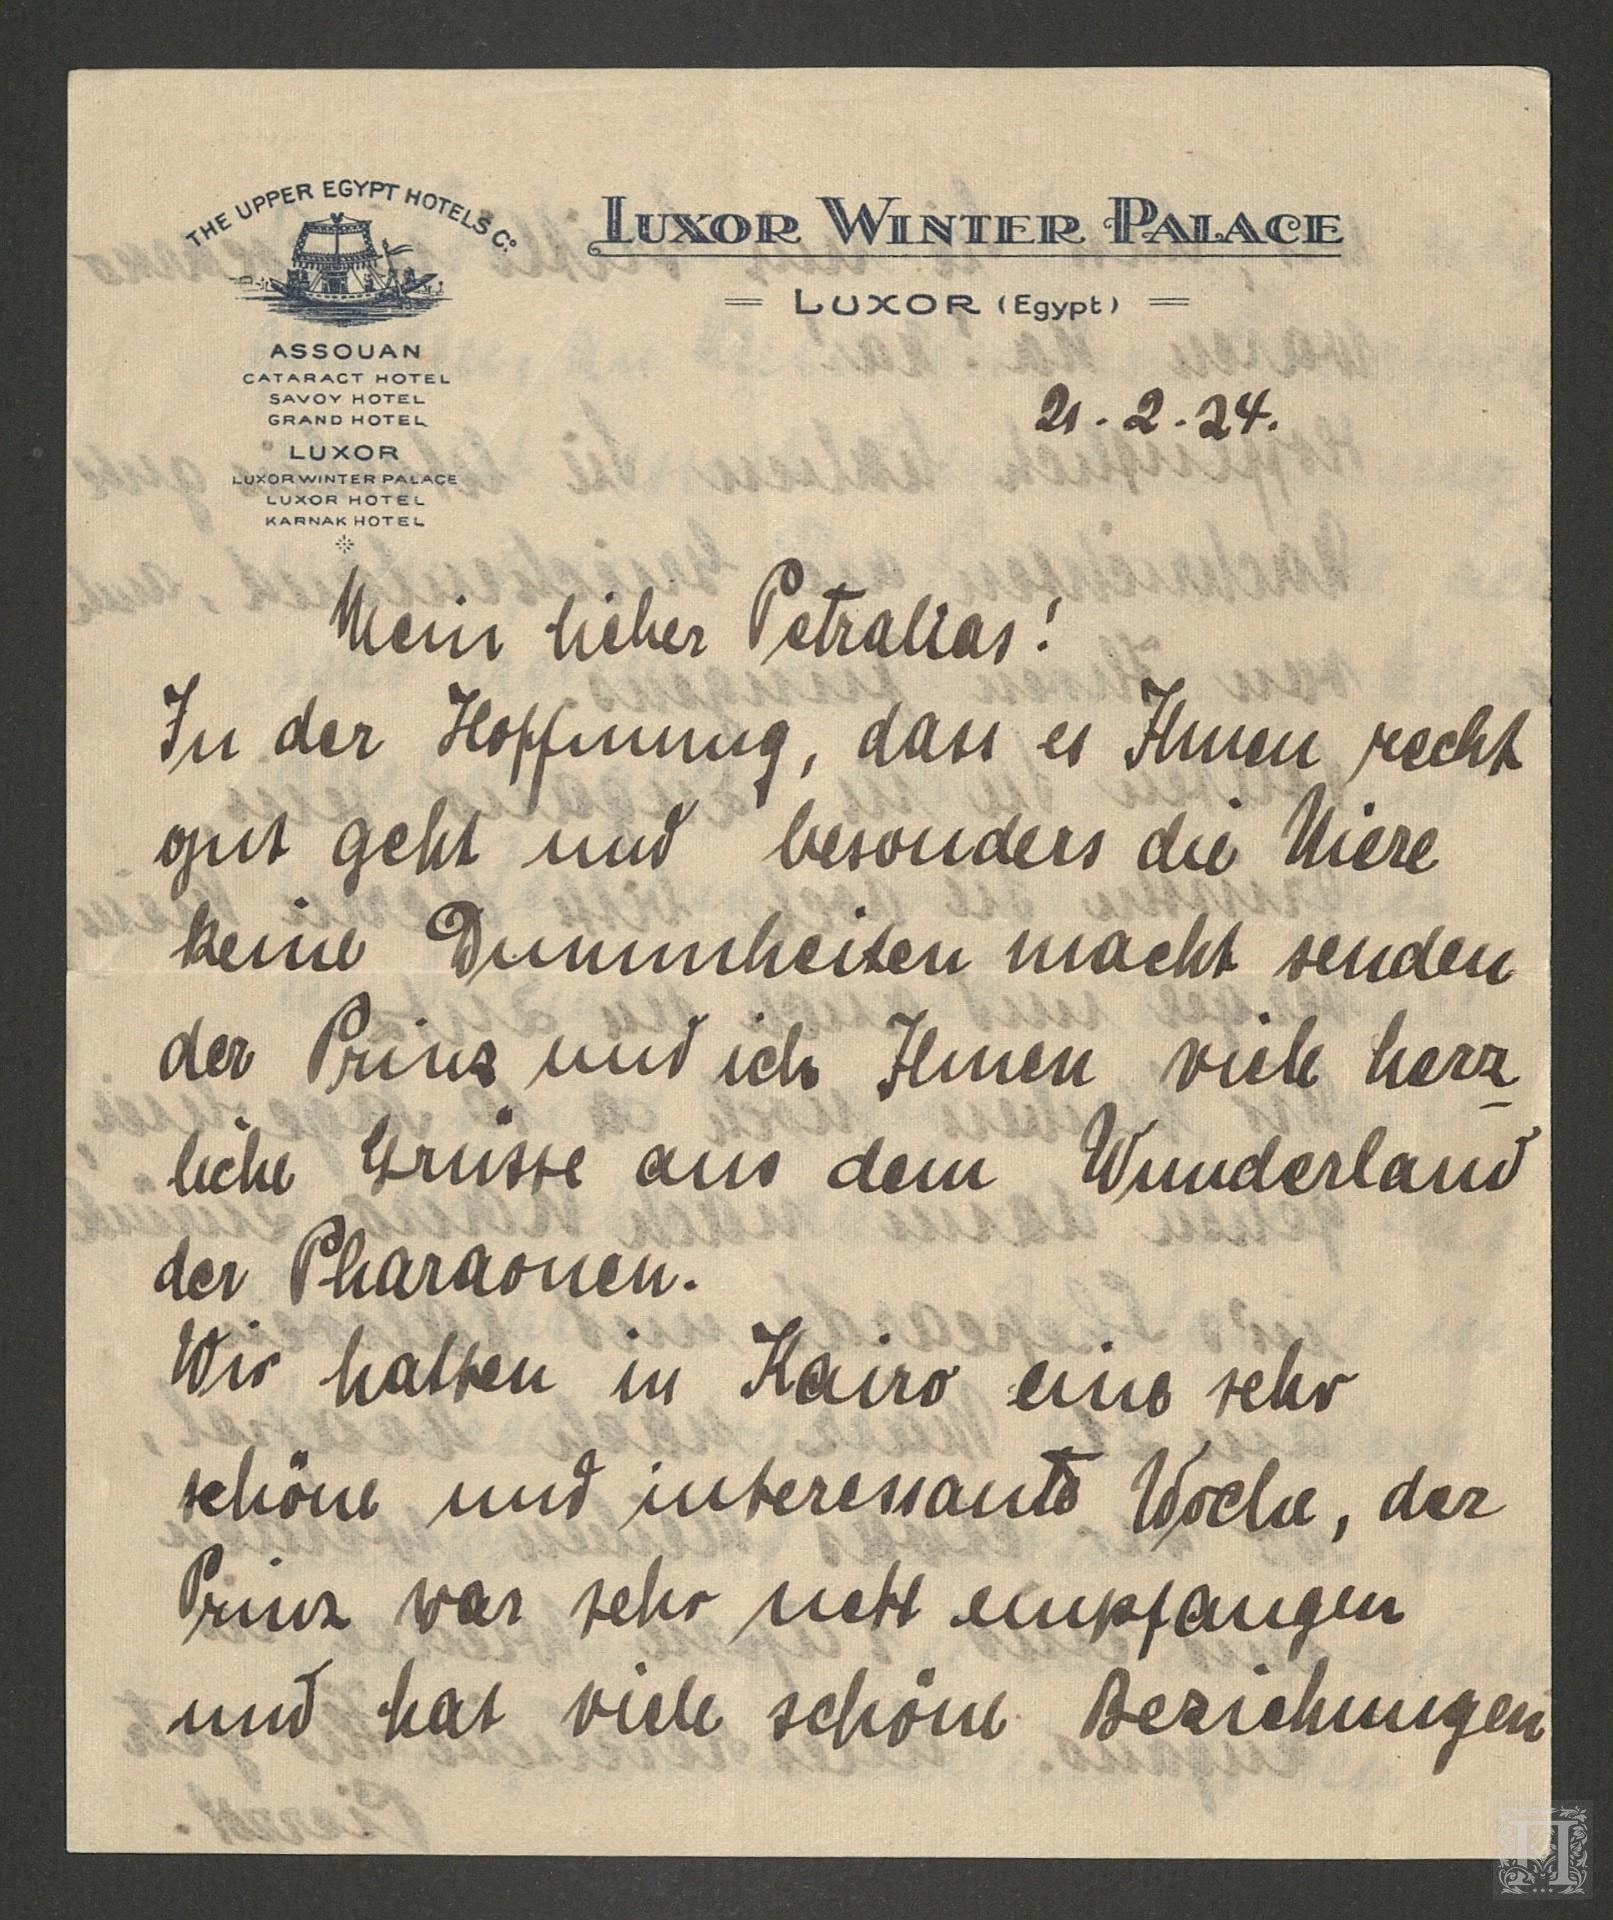 THE UPPER EGYPT HOTELS Co.
LUXOR WINTER PALACE
LUXOR (Egypt)
ASSOUAN
CATARACT HOTEL
SAVOY HOTEL
GRAND HOTEL
LUXOR
LUXOR WINTER PALACE
LUXOR HOTEL
KARNAK HOTEL
21.2.24.
Mein lieber Petralias!
In der Hoffnung, dass es Ihnen recht
gut geht und besonders die Niere
keine Dummheiten macht senden
der Prinz und ich Ihnen viele herz
liche Grüsse aus dem Wunderland
der Pharaonen.
Wir hatten in Kairo eine sehr
schöne und interessante Woche, der
Prinz war sehr nett empfangen
und hat viele schöne Beziehungen